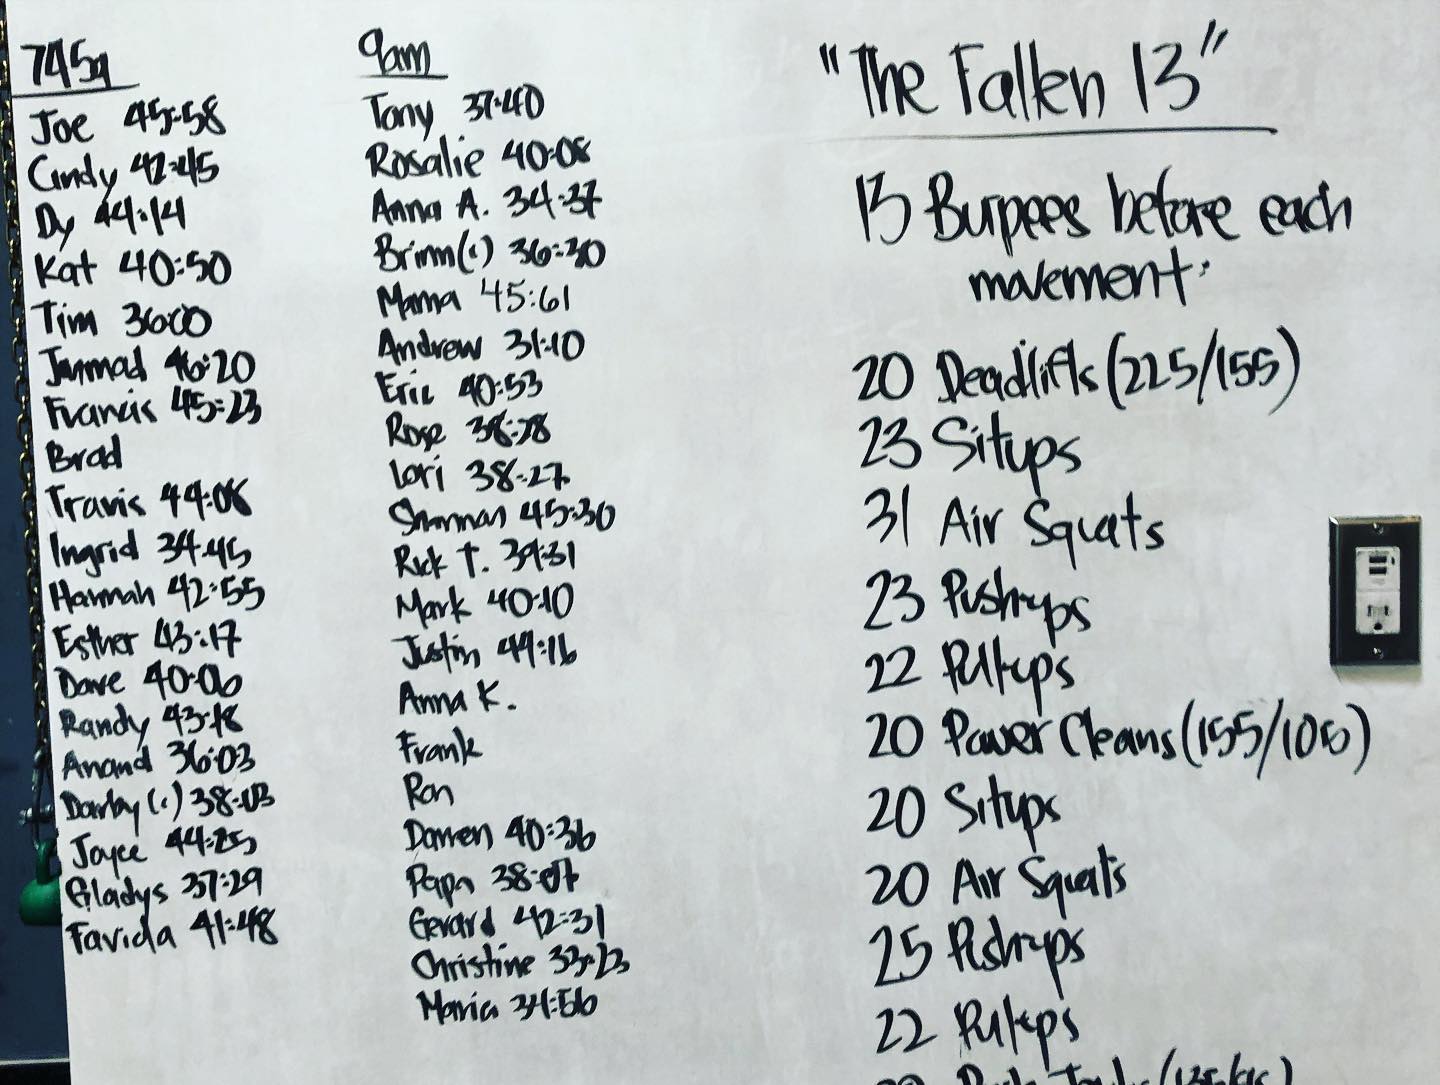 745a
Joe 45:58
Cindy 42:45
Dy 44:14
Kat 40:50
Tim 36:00
Jammad 46:20
Francis 45:23
Brad
Travis 44:08
Ingrid 34:45
Hannah 42:55
Esther 43:17
Dave 40:06
Randy 43:18
Anand 36:03
Darby (c) 38:03
Joyce 44:25
Gladys 37:29
Favida 41:48
9am
Tony 37:40
Rosalie 40:08
Anna A. 34:37
Brinn (c) 36:30
Mama 45:61
Andrew 31:10
Eric 40:53
Rose 38:28
Lori 38:27
45:30
Rick T. 39:31
Mark 40:10
Justin 44:16
Anna K.
Frank
Ron
Darren 40:36
Papa 38:07
Gerard 42:31
Christine 33:23
Maria 34:56
"The Fallen 13"
13 Burpees before each
movement:
20 Deadlifts (225/155)
23 Situps
31 Air Squats
23 Pushups
22 Pullups
20 Power Cleans (155/105)
20 Situps
20 Air Squats
25 Pushups
22 Pullups